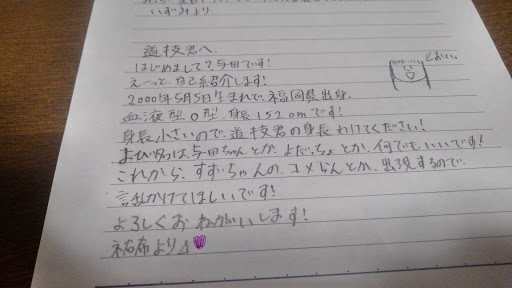 いずみより
道枝君へ
はじめまして？与田です！
え〜っと、自己紹介します！
2000年5月5日生まれで、福岡県出身、
血液型O型、身長152cmです！
身長小さいので、道枝君の身長わけてください！
よび名は、与田ちゃんとか、よだっちょとか、何でもいいです！
これから、すずちゃんの、コメらんとか、出現するので、
話しかけてほしいです！
よろしくおねがいします！
祐希より